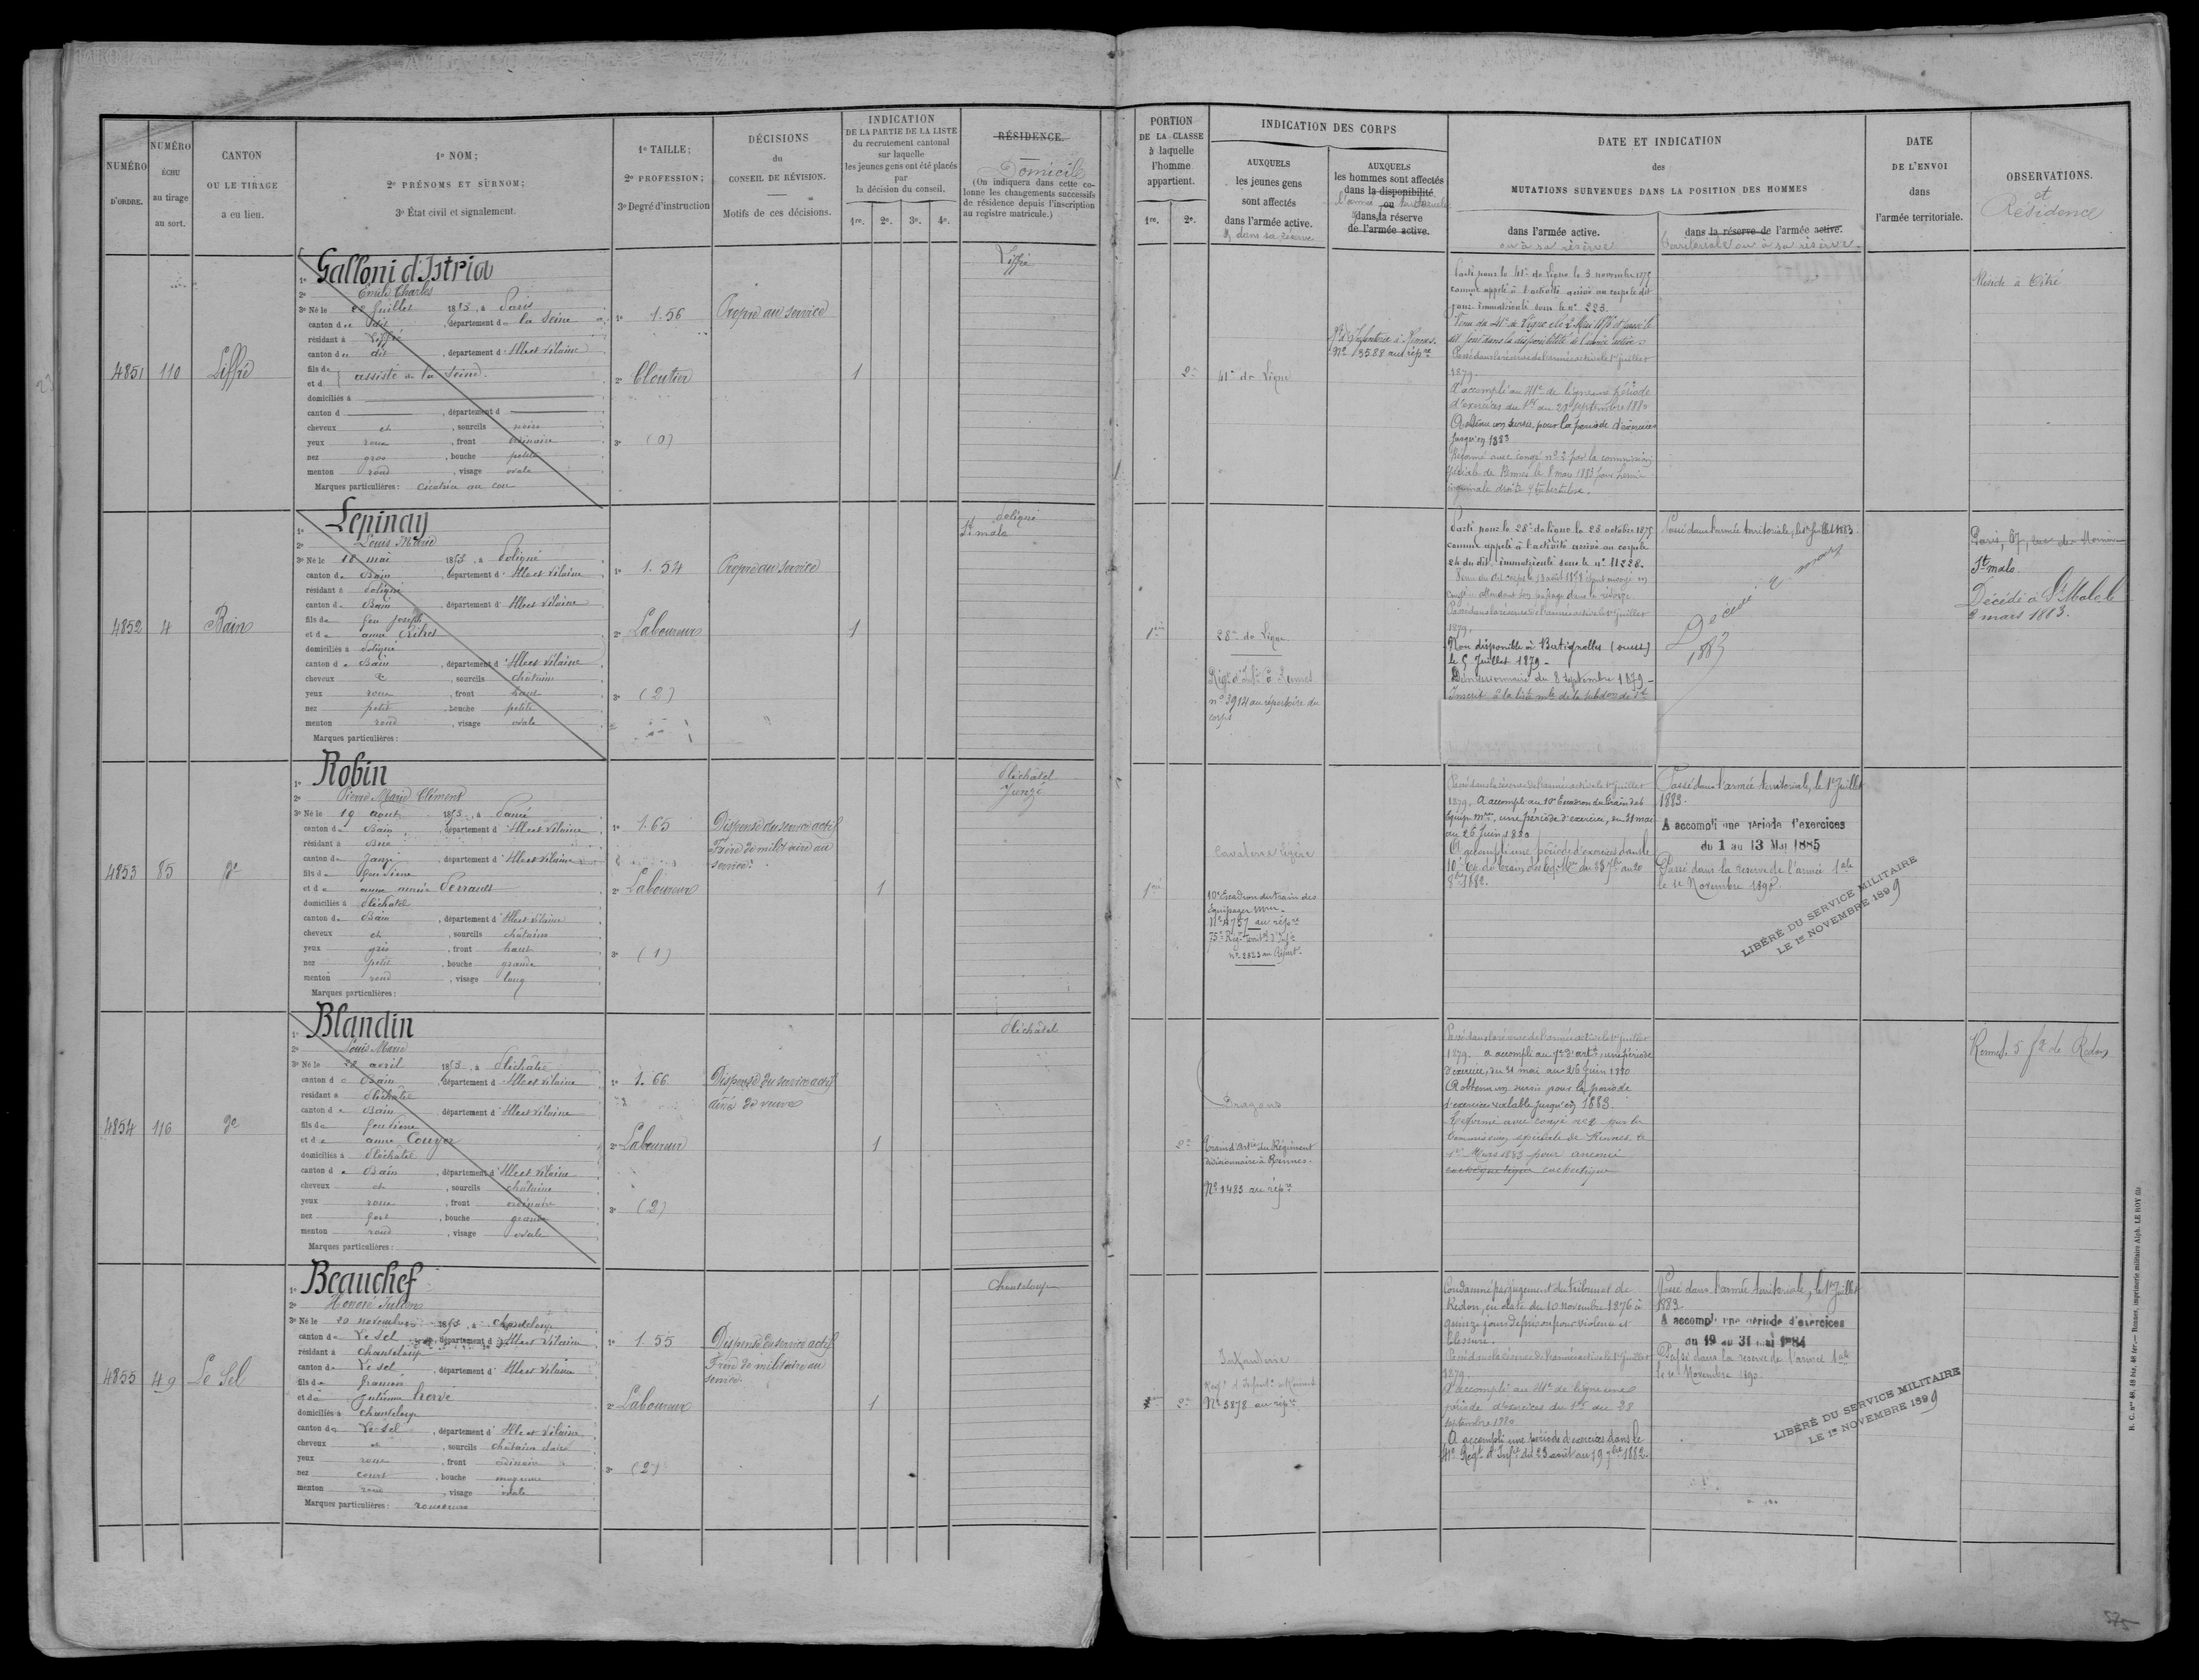 NUMÉRO
D'ORDRE.
NUMÉRO
ÉCHU
au tirage
au sort.
CANTON
OU LE TIRAGE
a eu lieu.
1º NOM;
2º PRÉNOMS ET SURNOM;
3º État civil et signalement.
1º TAILLE;
2º PROFESSION;
3º Degré d'instruction
DÉCISIONS
du
CONSEIL DE RÉVISION.
Motifs de ces décisions.
INDICATION
DE LA PARTIE DE LA LISTE
du recrutement cantonal
sur laquelle
les jeunes gens ont été placés
par
la décision du conseil.
1re. 2e. 3e. 4e.
RÉSIDENCE.
Domicile
(On indiquera dans cette co-
lonne les changements successifs
de résidence depuis l'inscription
au registre matricule.)
PORTION
DE LA CLASSE
à laquelle
l'homme
appartient.
1re. 2e.
INDICATION DES CORPS
AUXQUELS
les jeunes gens
sont affectés
dans l'armée active.
& dans sa réserve
AUXQUELS
les hommes sont affectés
dans la disponibilité.
l'armée ou territoriale
dans la réserve
de l'armée active.
DATE ET INDICATION
des
MUTATIONS SURVENUES DANS LA POSITION DES HOMMES
dans l'armée active.
ou à sa réserve
dans la réserve de l'armée active.
territoriale ou à sa réserve
DATE
DE L'ENVOI
dans
l'armée territoriale.
OBSERVATIONS.
et
Résidence
4851 110 Liffré
Galloni d'Istria
Emile Charles
3º Né le 28 Juillet 1855, à Paris
canton de dit, département de la Seine
résidant à Liffré
canton de dit, département d'Ille et Vilaine
fils de
et d assisté de la Seine.
domiciliés à
canton d , département d
cheveux et, sourcils noirs
yeux roux, front ordinaire
nez gros, bouche petite
menton rond, visage ovale
Marques particulières: Cicatrice au cou
1º 1.56
2º Cloutier
3º (0)
Propre au service
1
Liffré
2e
41e de Ligne
Rt d'Infanterie à Rennes.
Nº 13588 au répre
Parti pour le 41e de Ligne le 3 novembre 1875
comme appelé à l'activité arrivé au corps le dit
jour. Immatriculé sous le nº 223.
Passé dans la réserve de l'armée active le 1er juillet
1879.
A accompli au 41e de ligne une période
d'exercices du 1er au 28 septembre 1880
A obtenu un sursis pour la période d'exercices
jusqu'en 1883
Réformé avec congé nº 2 par la commission
spéciale de Rennes le 8 mars 1883 pour hernie
inguinale droite
Réside à Vitré
4852 4 Bain
Lepinay
Louis Marie
3º Né le 18 mai 1855, à Poligné
canton de Bain, département d'Ille et Vilaine
résidant à Poligné
canton de Bain, département d'Ille et Vilaine
fils de feu Joseph
et de anne
domiciliés à Poligné
canton de Bain, département d'Ille et Vilaine
cheveux &, sourcils châtains
yeux roux, front haut
nez petit, bouche petite
menton rond, visage ovale
Marques particulières:
1º 1.54
2º Laboureur
3º (2)
Propre au service
1
Poligné
St malo
1ère
28e de Ligne
Régt d'Infie à Rennes
nº 3914 au répertoire du
corps
Parti pour le 28e de ligne le 23 octobre 1875
comme appelé à l'activité arrivé au corps le
24 du dit. immatriculé sous le nº 11228.
Passé dans la réserve de l'armée active le 1er juillet
1879.
Non disponible à Batignolles (ouest)
le 5 Juillet 1879 -
Démissionnaire du 8 septembre 1879 -
Inscrit à la liste mle de la subdon de St
Passé dans l'armée territoriale, le 1er Juillet 1883.
Décédé : 2 mars
1883
St malo
Décédé à St Malo le
2 mars 1883.
4853 85 do
Robin
Pierre Marie Clément
3º Né le 19 aout 1855, à Pancé
canton de Bain, département d'Ille et Vilaine
résidant à Brie
canton de Janzé, département d'Ille et Vilaine
fils de feu Pierre
et de anne marie Perrault
domiciliés à Pléchatel
canton de Bain, département d'Ille et Vilaine
cheveux et, sourcils châtains
yeux gris, front haut
nez petit, bouche grande
menton rond, visage long
Marques particulières:
1º 1.65
2º Laboureur
3º (1)
Dispensé du service actif
Frère de militaire au
service.
1
Pléchâtel
Janzé
1ère
Cavalerie légère
10e Escadron du train des
équipages mres
Nº 4757 au répre
75e Régt territal d'Infie
nº 2823 au Répert.
Passé dans la réserve de l'armée active le 1er juillet
1879. A accompli au 10e Escadron du train des
équip. mres, une période d'exercice, du 31 mai
au 26 juin 1880
A accompli une période d'exercices dans le
10e Esc. du train des Eq. Mres du 23 7bre au 20
8bre 1882.
Passé dans l'armée territoriale, le 1er Juillet
1883.
A accompli une période d'exercices
du 1 au 13 Mai 1885
Passé dans la réserve de l'armée tale
le 1er Novembre 1890.
LIBÉRÉ DU SERVICE MILITAIRE
LE 1er NOVEMBRE 1899
4854 116 do
Blandin
Louis Marie
3º Né le 22 avril 1855, à Pléchâtel
canton de Bain, département d'Ille et Vilaine
résidant à Pléchâtel
canton de Bain, département d'Ille et Vilaine
fils de feu Pierre
et de anne Couyer
domiciliés à Pléchâtel
canton de Bain, département d'Ille et Vilaine
cheveux et, sourcils châtains
yeux roux, front ordinaire
nez fort, bouche grande
menton rond, visage ovale
Marques particulières:
1º 1.66
2º Laboureur
3º (2)
Dispensé du service actif
aîné de veuve
1
Pléchâtel
2e
Dragons
Train d'Artie du Régiment
divisionnaire à Rennes.
Nº 1483 au répre
Passé dans la réserve de l'armée active le 1er juillet
1879. a accompli au 7e d'artie, une période
d'exercice, du 31 mai au 26 juin 1880
A obtenu un sursis pour la période
d'exercices valable jusqu'en 1883.
Réformé avec congé nº 2 par la
Commission spéciale de Rennes le
1er Mars 1883 pour anémie
cachectique
Rennes. 5 fg de Redon
4855 49 Le Sel
Beauchef
Honoré Julien
3º Né le 20 novembre 1855, à Chanteloup
canton de Le Sel, département d'Ille et Vilaine
résidant à Chanteloup
canton de Le Sel, département d'Ille et Vilaine
fils de François
et de Julienne hervé
domiciliés à Chanteloup
canton de Le Sel, département d'Ille et Vilaine
cheveux et, sourcils châtain clair
yeux roux, front ordinaire
nez court, bouche moyenne
menton rond, visage ovale
Marques particulières: rousseurs
1º 1.55
2º Laboureur
3º (2)
Dispensé du service actif
Frère de militaire au
service.
1
Chanteloup
2e
Infanterie
Régt d'Infantie à Rennes
Nº 3878 au répre
Condamné par jugement du tribunal de
Redon, en date du 10 novembre 1876 à
quinze jours de prison pour violence et
blessure.
Passé dans la réserve de l'armée active le 1er juillet
1879.
A accompli au 41e de ligne une
période d'exercices du 1er au 28
septembre 1880
A accompli une période d'exercices dans le
41e Régt d'Infie du 23 août au 19 7bre 1882.
Passé dans l'armée territoriale, le 1er Juillet
1883
A accompli une période d'exercices
du 19 au 31 mai 1884
Passé dans la réserve de l'armée tale
le 1er Novembre 1890.
LIBÉRÉ DU SERVICE MILITAIRE
LE 1er NOVEMBRE 1899
R. C. nos 48, 48 bis, 48 ter. — Rennes, imprimerie militaire Alph. LE ROY fils
575